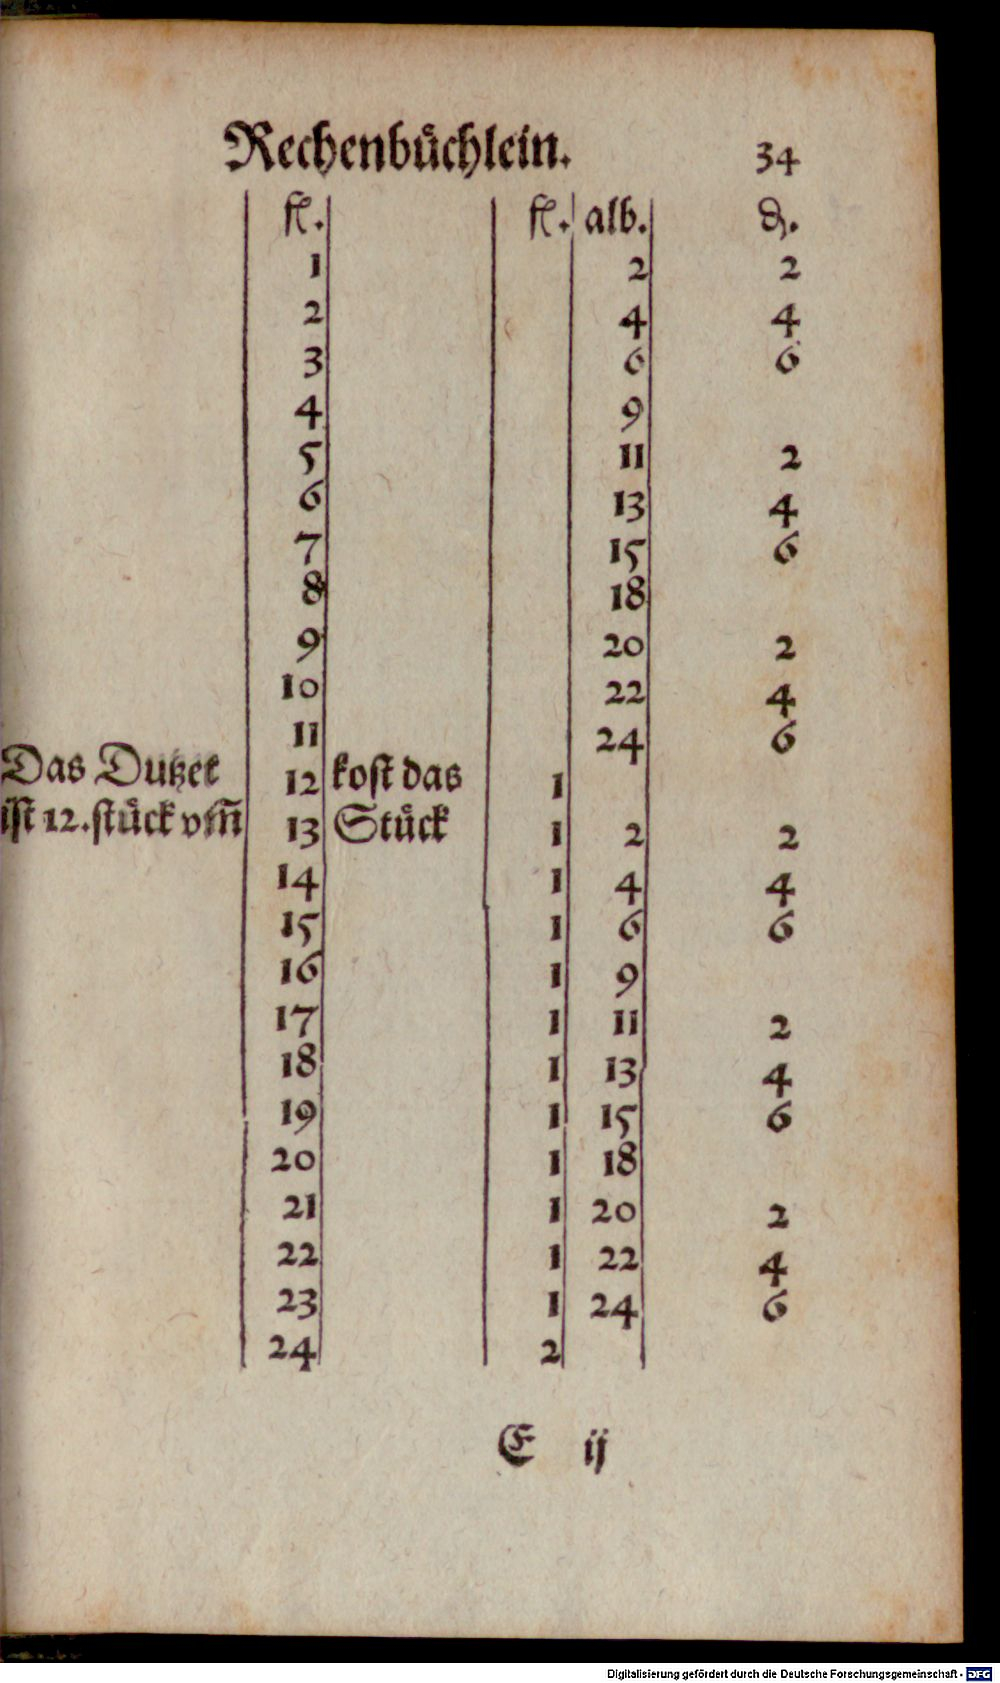 Rechenbuͤchlein. 34
fl. fl. alb. ₰.
1 2 2
2 4 4
3 6 6
4 9
5 11 2
6 13 4
7 15 6
8 18
9 20 2
10 22 4
11 24 6
Das Dutzet 12 kost das 1
ist 12. stuͤck vm̃ 13 Stuͤck 1 2 2
14 1 4 4
15 1 6 6
16 1 9
17 1 11 2
18 1 13 4
19 1 15 6
20 1 18
21 1 20 2
22 1 22 4
23 1 24 6
24 2
E ij
Digitalisierung gefördert durch die Deutsche Forschungsgemeinschaft - DFG